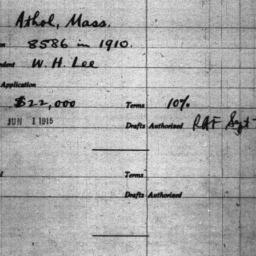 Athol, Mass.
8586 in 1910.
W. H. Lee
Application
$22,000 Terms 10%
JUN 1 1915 Drafts Authorized
Terms
Drafts Authorized